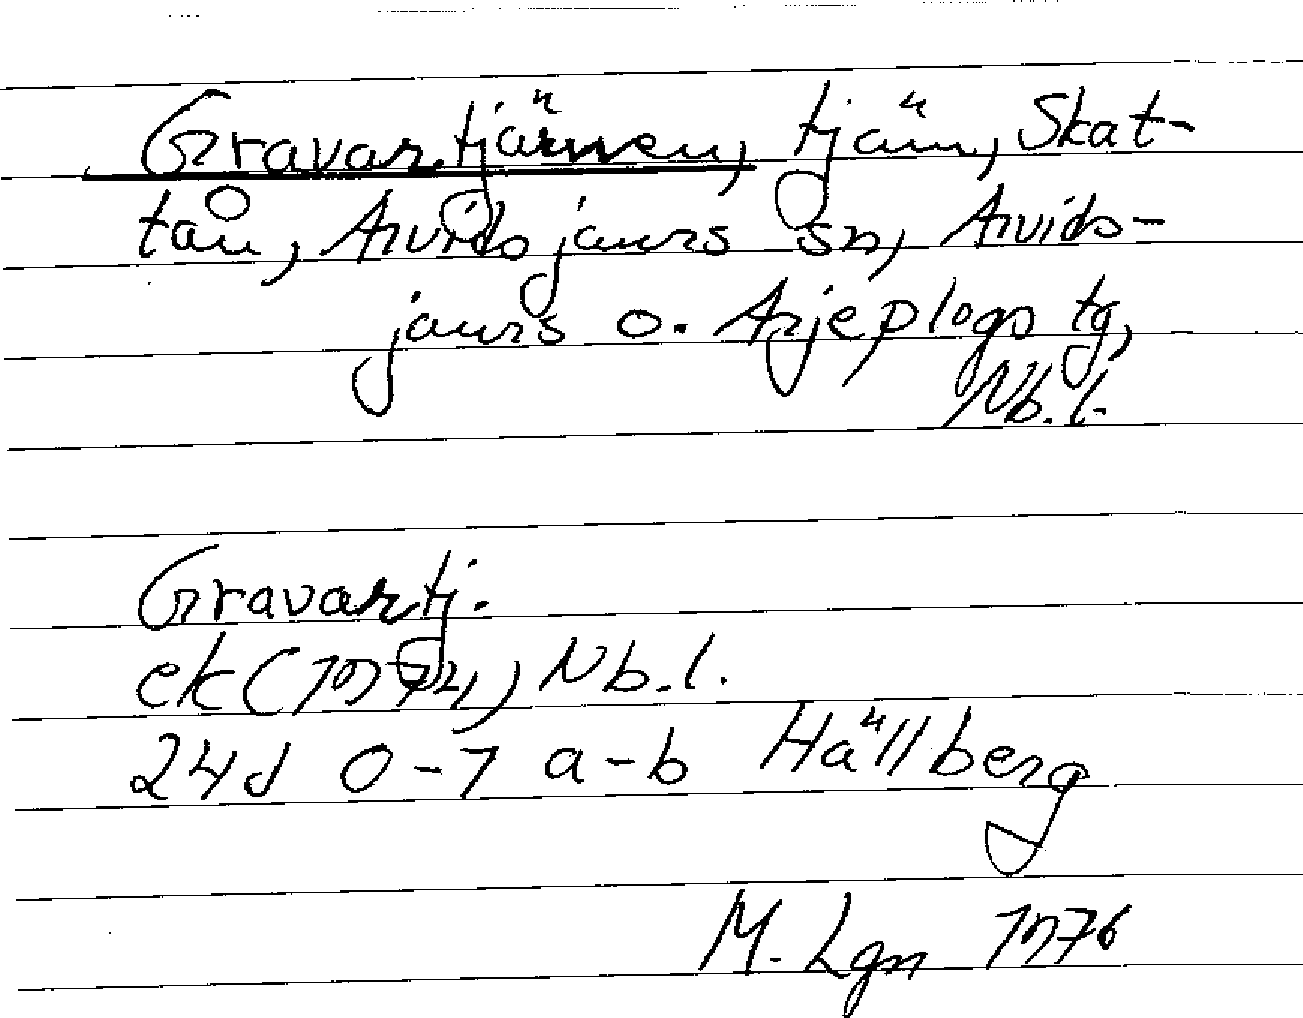 Gravartjärnen, tjärn, Skat-
tån, Arvidsjaurs sn, Arvids-
jaurs o. Arjeplogs tg,
Nb.l.
Gravartj.
ek (1974) Nb.l.
24d 0-1 a-b Hällberg
M. Lgn 1976